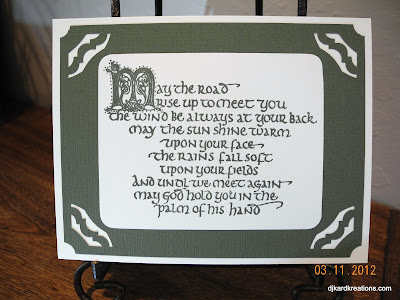 May the road
rise up to meet you
the wind be always at your back
may the sun shine warm
upon your face
the rains fall soft
upon your fields
and until we meet again
may God hold you in the
palm of his hand
03.11.2012
djkardkreations.com